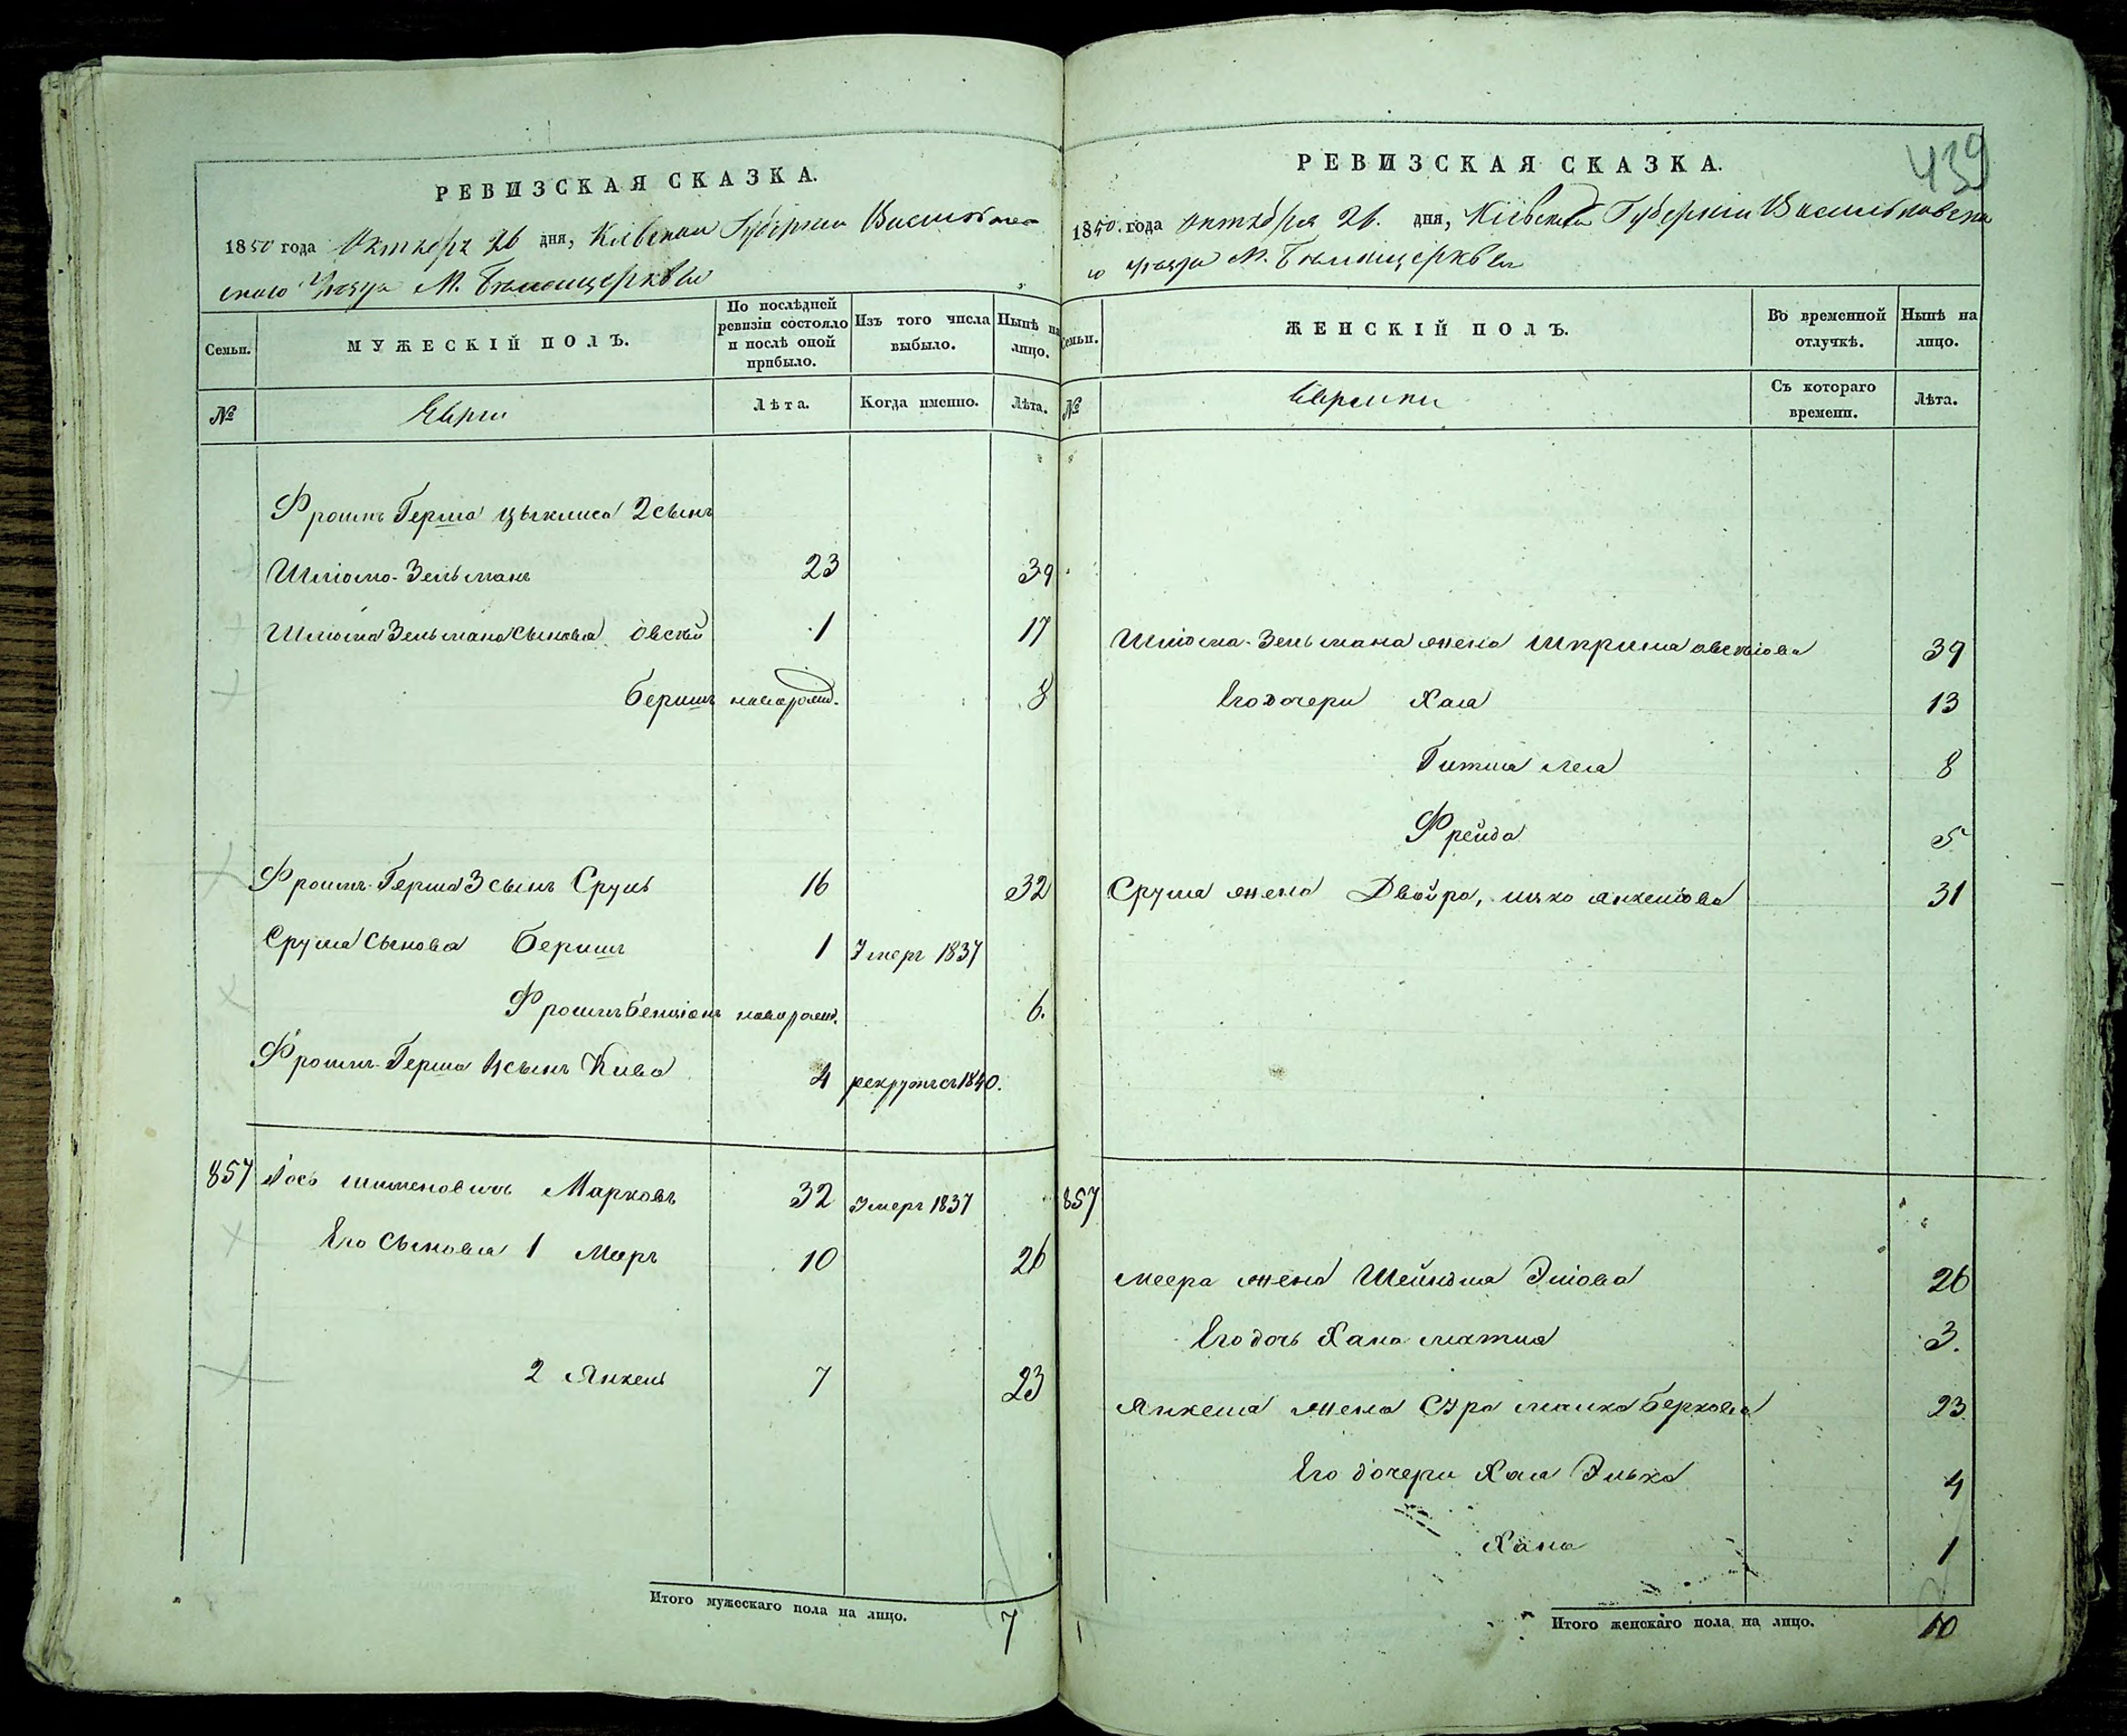 РЕВИЗСКАЯ СКАЗКА.
1850 года Октября 26 дня, Кіевской Губерніи Васильков
скаго Уѣзда М. Бѣлоцеркви
Семьи.
МУЖЕСКІЙ ПОЛЪ.
По послѣдней ревизіи состояло и послѣ оной прибыло.
Изъ того числа выбыло.
Нынѣ на лицо.
№
Евреи
Лѣта.
Когда именно.
Лѣта.
Фроимъ Герша 2 сынъ
Шлiомо-Зельманъ 23 39
Шлiома Зельмана сыновья Овсѣй 1 17
Беришъ новорожд. 8
Фроимъ-Герша 3 сынъ Сруль 16 32
Сруля сыновья Беришъ 1 Умеръ 1837
Фроимъ Бенціонъ новорожд. 6.
Фроимъ-Герша 4 сынъ Кива 4 рекрутъ съ 1840.
857 Іось Марковъ 32 умеръ 1837
Его сыновья 1 Меръ 10 26
2 Янкель 7 23
Итого мужескаго пола на лицо. 7
439
РЕВИЗСКАЯ СКАЗКА.
1850. года Октября 26. дня, Кіевской Губерніи Васильковска
го Уѣзда М. Бѣлоцеркви
Семьи.
ЖЕНСКІЙ ПОЛЪ.
Во временной отлучкѣ.
Нынѣ на лицо.
№
Еврейки
Съ котораго времени.
Лѣта.
Шлiома-Зельмана жена Шпринца 39
Его дочери Хая 13
Гитля Лея 8
Фрейда 5
Сруля жена Двойра, Янкелiова 31
857
Меера жена Шейндля 26
Его дочь Хана 3.
Янкеля жена Сура Малка Беркова 23
Его дочери Хая Элька 4
Хана 1
Итого женскаго пола на лицо. 10